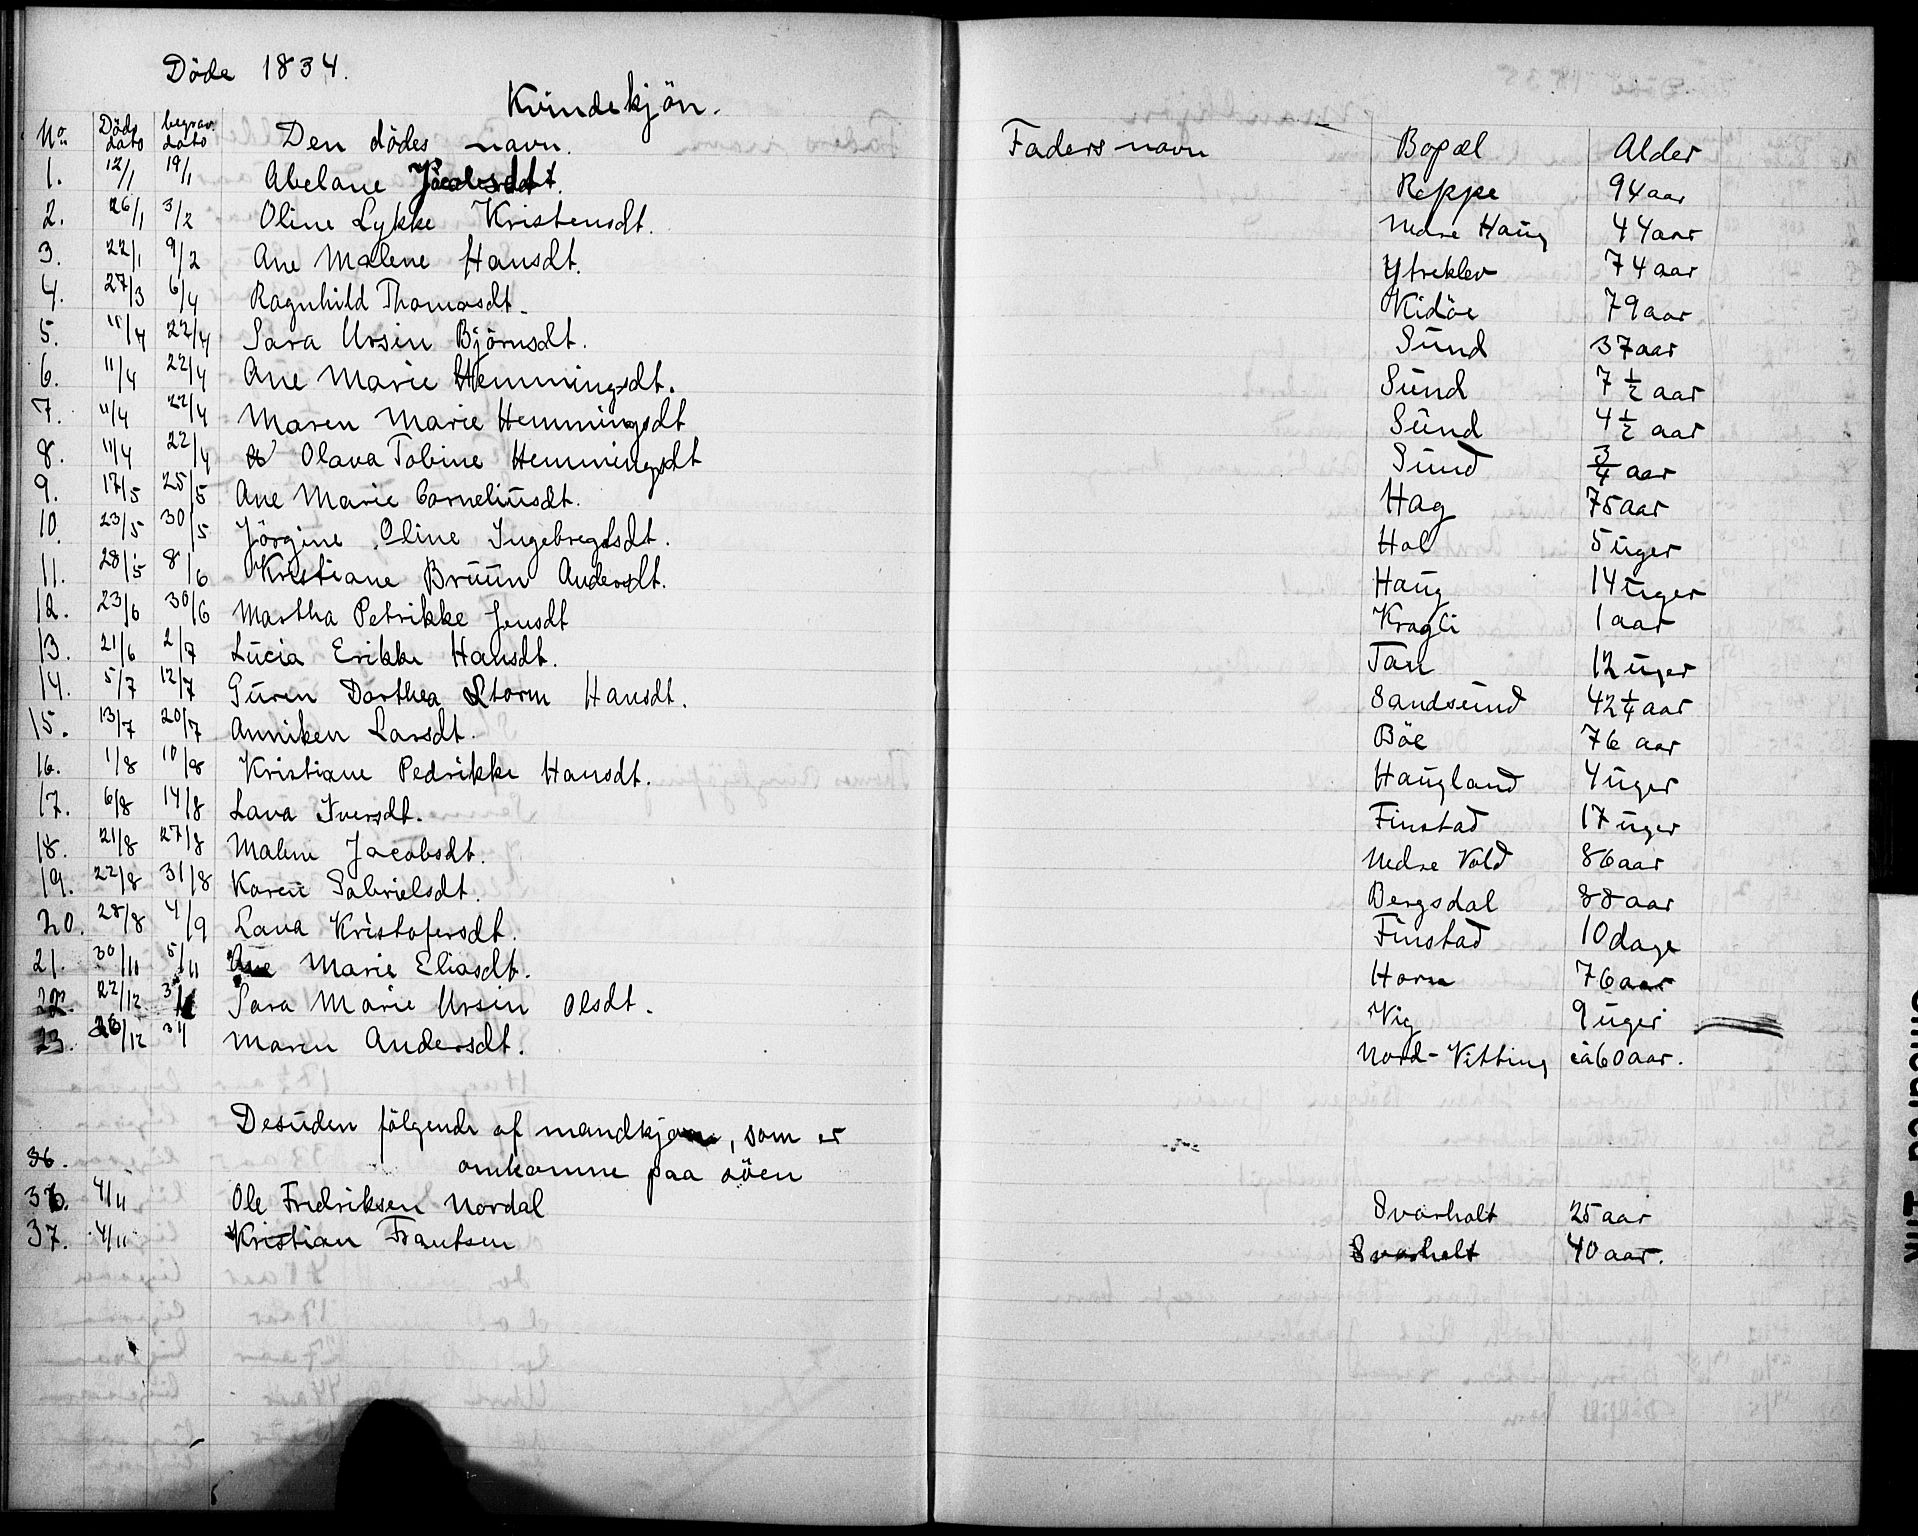 Döde 1834.
Kvindekjön.
No. Döds dato begrav. dato Den dödes navn. Faders navn Bopæl Alder
1. 12/1 19/1 Abelane Jacobsdt. Reppe 94 aar
2. 26/1 3/2 Oline Lykke Kristensdt. Nedre Haug 44 aar
3. 22/1 9/2 Ane Malene Hansdt. Ytreklev 74 aar
4. 27/3 6/4 Ragnhild Thomasdt. Kidöe 79 aar
5. 11/4 22/4 Sara Ursin Björnsdt. Sund 37 aar
6. 11/4 22/4 Ane Marie Hemmingsdt. Sund 7 1/2 aar
7. 11/4 22/4 Maren Marie Hemmingsdt Sund 4 1/2 aar
8. 11/4 22/4 Olava Tobine Hemmingsdt Sund 3/4 aar
9. 17/5 25/5 Ane Marie Corneliusdt. Hag 75 aar
10. 23/5 30/5 Jörgine Oline Ingebregtsdt. Hol 5 uger
11. 28/5 8/6 Kristiane Bruun Andersdt. Haug 14 uger
12. 23/6 30/6 Martha Petrikke Jensdt Kragli 1 aar
13. 21/6 2/7 Lucia Erikke Hansdt. Tan 12 uger
14. 5/7 12/7 Guren Dorthea Storm Hansdt. Sandsund 42 1/4 aar
15. 13/7 20/7 Anniken Larsdt. Böe 76 aar
16. 1/8 10/8 Kristiane Pedrikke Hansdt. Haugland 4 uger
17. 6/8 14/8 Lava Iversdt. Finstad 17 uger
18. 21/8 27/8 Malene Jacobsdt. Nedre Vold 86 aar
19. 22/8 31/8 Karen Gabrielsdt. Bergsdal 88 aar
20. 28/8 4/9 Lava Kristofersdt. Finstad 10 dage
21. 30/11 5/11 Ane Marie Eliasdt. Horn 76 aar
22. 22/12 Sara Marie Ursin Olsdt. Vig 9 uger
23. /12 Maren Andersdt. Nord-Vitting ca 60 aar.
Desuden fölgende af mandkjön, som er
36. omkomne paa söen
36. 4/11 Ole Fredriksen Nordal Svarholt 25 aar
37. 4/11 Kristian Frantsen Svarholt 40 aar.